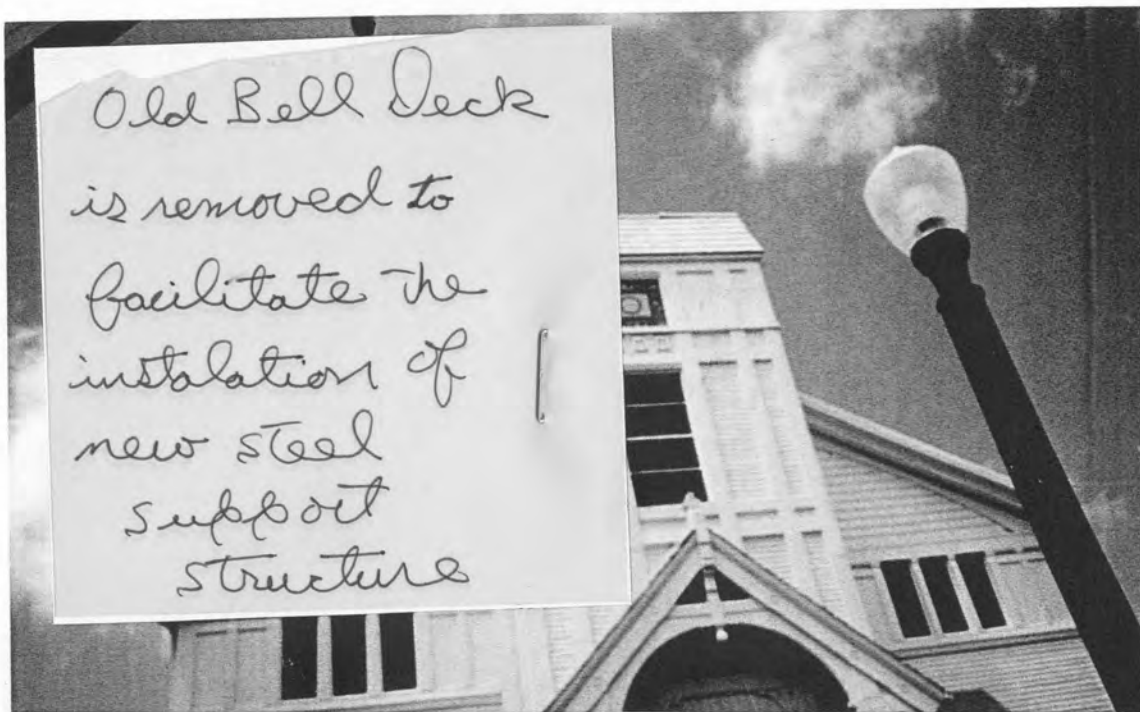 Old Bell Deck
is removed to
facilitate the
instalation of
new steel
support
structure